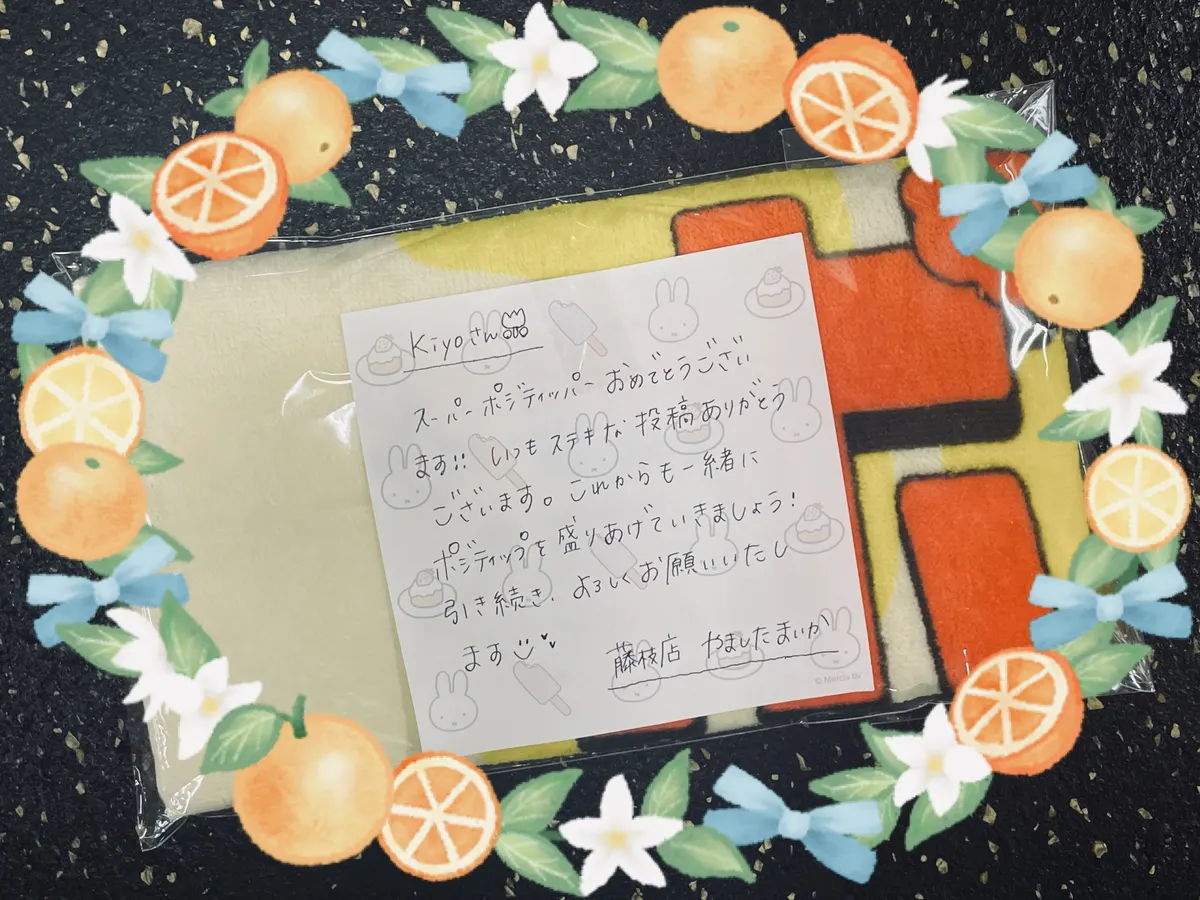 Kiyoさん
スーパーポジティッパーおめでとうござい
ます!! いつもステキな投稿ありがとう
ございます。これからも一緒に
ポジティップを盛りあげていきましょう!
引き続き、よろしくお願いいたし
ます
藤枝店 やましたまいか
© Mercis bv